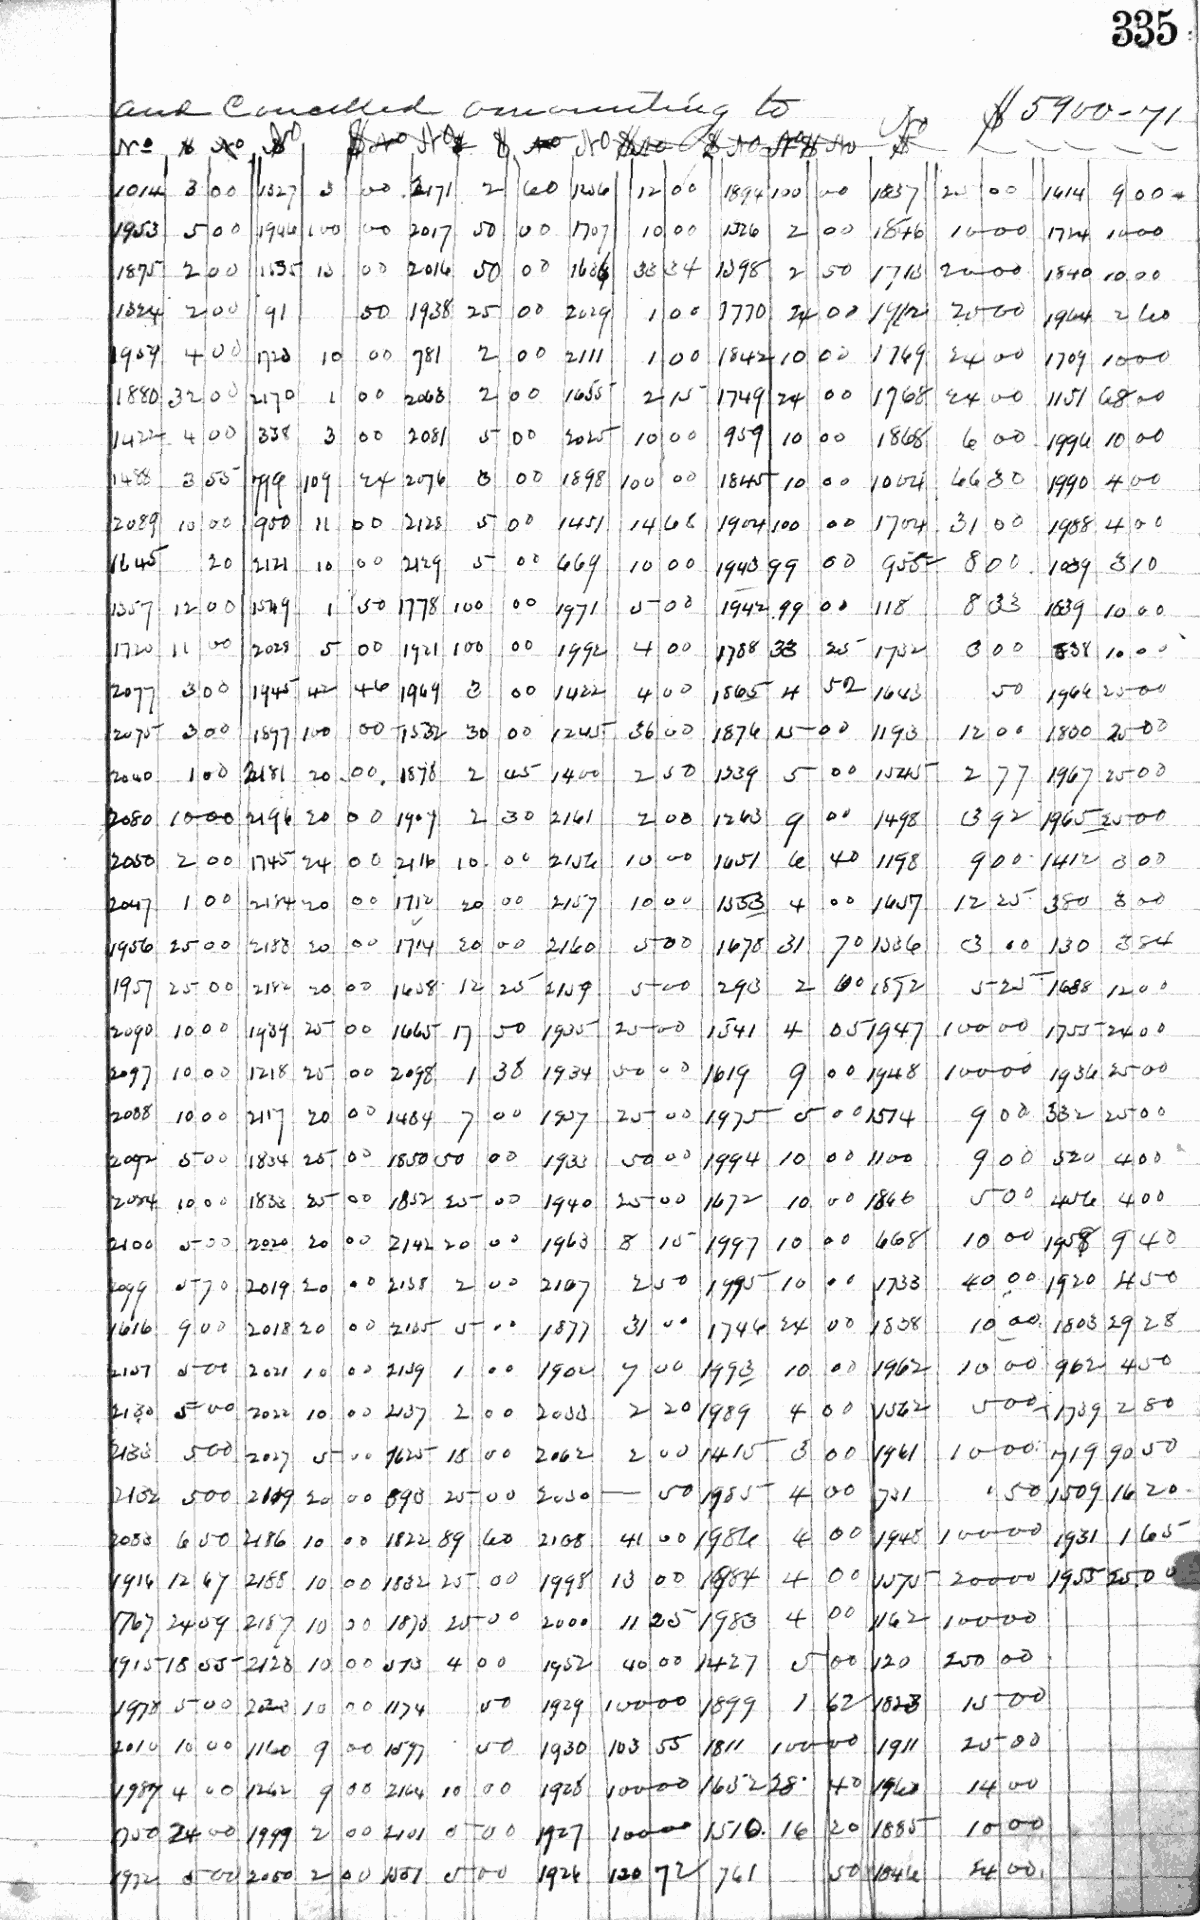 335
and Cancelled amounting to $5900-71
No $ No $ No $ No $ No $ No $
1014 3 00 1327 3 00 2171 2 60 1236 12 00 1894 100 00 1837 25 00 1614 9 00
1953 5 00 1946 100 00 2017 50 00 1707 10 00 1326 2 00 1846 10 00 1724 10 00
1875 2 00 1635 13 00 2016 50 00 33 34 1398 2 50 1713 20 00 1840 10 00
1324 2 00 91 50 1938 25 00 2029 1 00 1770 24 00 1912 25 00 1964 2 60
1909 4 00 1723 10 00 781 2 00 2111 1 00 1842 10 00 1769 24 00 1709 10 00
1880 32 00 2170 1 00 2063 2 00 1655 2 15 1749 24 00 1768 24 00 1151 68 00
1422 4 00 338 3 00 2081 5 00 2025 10 00 959 10 00 1868 6 00 1996 10 00
1488 3 55 799 109 24 2076 3 00 1898 100 00 1845 10 00 1004 66 30 1990 4 00
2089 10 00 950 11 00 2128 5 00 1451 14 68 1904 100 00 1704 31 00 1988 4 00
1645 20 2121 10 00 2129 5 00 669 10 00 1943 99 00 955 8 00 1039 3 10
1357 12 00 1549 1 50 1778 100 00 1971 5 00 1942 99 00 118 8 33 1639 10 00
1720 11 00 2028 5 00 1921 100 00 1992 4 00 1788 33 25 1732 3 00 838 10 00
2077 3 00 1945 42 46 1969 3 00 1422 4 00 1865 4 52 1643 50 1966 25 00
2075 3 00 1897 100 00 1532 30 00 1245 36 00 1876 15 00 1193 12 00 1830 25 00
2040 1 00 2181 20 00 1878 2 45 1400 2 50 1339 5 00 1545 2 77 1967 25 00
2080 10 00 2196 20 00 1907 2 30 2161 2 00 1263 9 00 1498 13 92 1965 25 00
2050 2 00 1745 24 00 2116 10 00 2156 10 00 1651 6 40 1198 9 00 1412 3 00
2047 1 00 2184 20 00 1712 20 00 2157 10 00 1353 4 00 1657 12 25 380 3 00
1956 25 00 2183 20 00 1714 20 00 2160 5 00 1678 31 70 1336 3 00 130 3 84
1957 25 00 2182 20 00 1658 12 25 2159 5 00 293 2 00 1892 5 25 1688 12 00
2090 10 00 1939 25 00 1665 17 50 1935 25 00 1541 4 05 1947 100 00 1755 24 00
2097 10 00 1218 25 00 2098 1 38 1934 50 00 1619 9 00 1948 100 00 1936 25 00
2088 10 00 2117 20 00 1484 7 00 1937 25 00 1975 5 00 1574 9 00 332 25 00
2092 5 00 1834 25 00 1850 50 00 1933 50 00 1994 10 00 1100 9 00 520 4 00
2084 10 00 1833 25 00 1852 25 00 1940 25 00 1672 10 00 1866 5 00 456 4 00
2100 5 00 2020 20 00 2142 20 00 1963 8 15 1997 10 00 668 10 00 1958 9 40
2099 5 70 2019 20 00 2138 2 00 2167 2 50 1995 10 00 1733 40 00 1920 4 50
1616 9 00 2018 20 00 2135 5 00 1877 31 00 1746 24 00 1838 10 00 1803 29 28
2137 5 00 2021 10 00 2139 1 00 1902 7 00 1993 10 00 1962 10 00 962 4 50
2130 5 00 2022 10 00 2137 2 00 2033 2 20 1989 4 00 1562 5 00 1739 2 80
2133 5 00 2027 5 00 1625 18 00 2062 2 00 1415 3 00 1961 10 00 719 90 50
2132 5 00 2189 20 00 893 25 00 2030 — 50 1985 4 00 731 50 1509 16 20
2083 6 50 2186 10 00 1822 89 60 2108 41 00 1986 4 00 1948 100 00 1931 1 65
1916 12 67 2188 10 00 1832 25 00 1998 13 00 1984 4 00 1575 200 00 1955 25 00
1767 24 09 2187 10 00 1873 25 00 2000 11 25 1983 4 00 1162 100 00
1915 18 55 2123 10 00 573 4 00 1952 40 00 1427 5 00 120 250 00
1978 5 00 10 00 1174 50 1929 100 00 1899 1 62 1823 15 00
2010 10 00 1160 9 00 1597 50 1930 103 55 1811 100 00 1911 25 00
1987 4 00 1262 9 00 2164 10 00 1928 100 00 1652 28 40 1960 14 00
1750 24 00 1999 2 00 2101 5 00 1927 100 00 1510 16 20 1885 10 00
1972 5 00 2050 2 00 1351 5 00 1926 120 72 761 50 1846 24 00